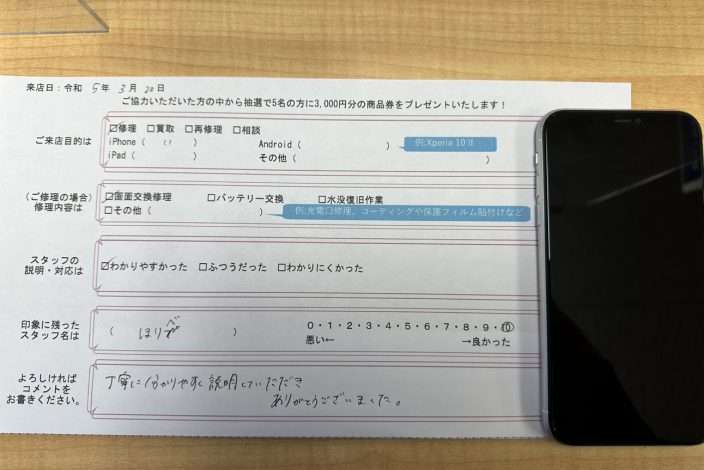 来店日：令和 5年 3月 20日
ご協力いただいた方の中から抽選で5名の方に3,000円分の商品券をプレゼントいたします！
ご来店目的は
☑修理 □買取 □再修理 □相談
iPhone（ 11 ） Android（ ） 例:Xperia 10 Ⅱ
iPad（ ） その他（ ）
（ご修理の場合）
修理内容は
☑画面交換修理 □バッテリー交換 □水没復旧作業
□その他（ ） 例:充電口修理、コーティングや保護フィルム貼付けなど
スタッフの
説明・対応は
☑わかりやすかった □ふつうだった □わかりにくかった
印象に残った
スタッフ名は
（ ほりべ ） 0・1・2・3・4・5・6・7・8・9・10
悪い← →良かった
よろしければ
コメントを
お書きください。
丁寧に分かりやすく説明していただき
ありがとうございました。